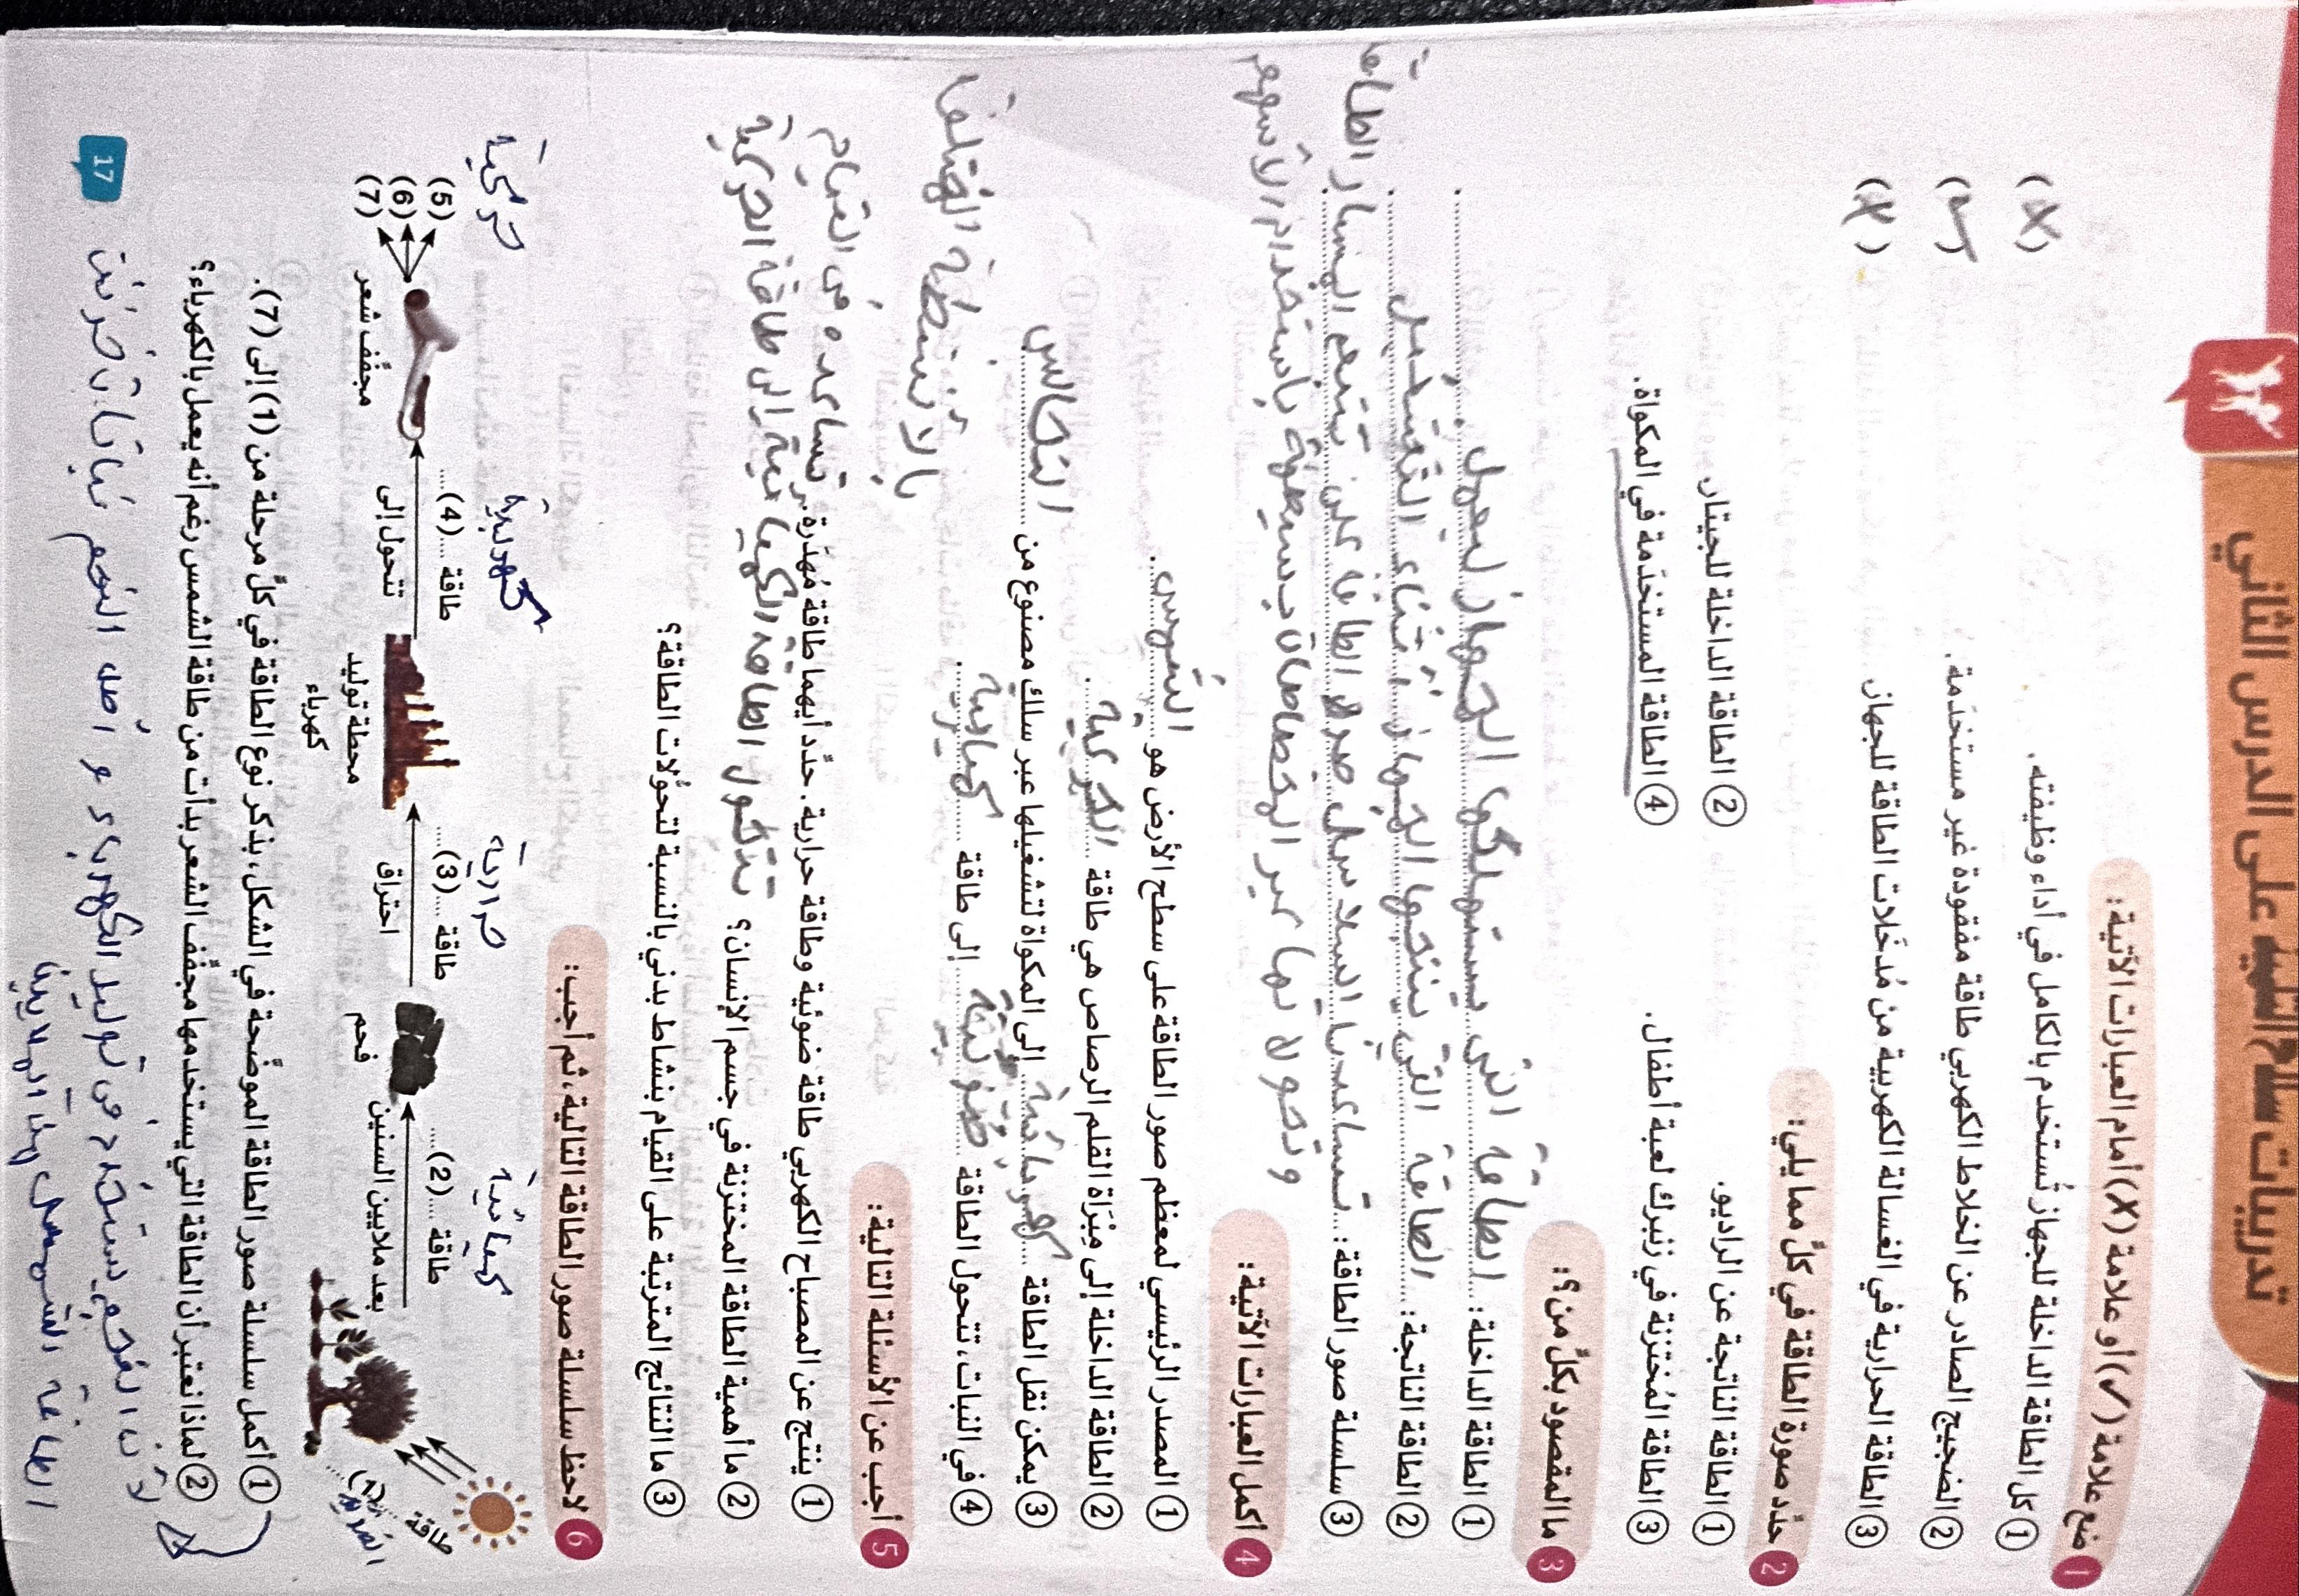 تدريبات سلاح التلميذ على الدرس الثاني
1 ضع علامة (✓) أو علامة (X) أمام العبارات الآتية:
① كل الطاقة الداخلة للجهاز تُستخدم بالكامل في أداء وظيفته. (X)
② الضجيج الصادر عن الخلاط الكهربي طاقة مفقودة غير مستخدَمة. (✓)
③ الطاقة الحرارية في الغسالة الكهربية من مُدخَلات الطاقة للجهاز. (X)
2 حدِّد صورة الطاقة في كلٍّ مما يلي:
① الطاقة الناتجة عن الراديو. ② الطاقة الداخلة للجيتار.
③ الطاقة المُختزنة في زنبرك لعبة أطفال. ④ الطاقة المستخدَمة في المكواة.
3 ما المقصود بكلٍّ من؟:
① الطاقة الداخلة: الطاقة التي يستهلكها الجهاز ليعمل.
② الطاقة الناتجة: الطاقة التي ينتجها الجهاز أثناء التشغيل
③ سلسلة صور الطاقة: تساعدنا سلاسل صور الطاقة على تتبع مسار الطاقة
وتحولاتها عبر المخططات بسيطة باستخدام الأسهم
4 أكمل العبارات الآتية:
① المصدر الرئيسي لمعظم صور الطاقة على سطح الأرض هو الشمس
② الطاقة الداخلة إلى مِبْراة القلم الرصاص هي طاقة الحركية
③ يمكن نقل الطاقة كهربائية إلى المكواة لتشغيلها عبر سلك مصنوع من النحاس
④ في النبات، تتحول الطاقة ضوئية إلى طاقة كيميائية
5 أجب عن الأسئلة التالية:
① ينتج عن المصباح الكهربي طاقة ضوئية وطاقة حرارية. حدِّد أيهما طاقة مُهدَرة.
② ما أهمية الطاقة المختزنة في جسم الإنسان؟ تساعده في القيام بالأنشطة المختلفة
③ ما النتائج المترتبة على القيام بنشاط بدني بالنسبة لتحوُّلات الطاقة؟ تتحول الطاقة الكيميائية إلى طاقة الحركية
6 لاحظ سلسلة صور الطاقة التالية، ثم أجب:
طاقة ....(1)....
طاقة ....(2).... كيميائية
بعد ملايين السنين
فحم
طاقة ....(3).... حرارية
احتراق
محطة توليد كهرباء
طاقة ....(4).... كهربية
تتحول إلى
مجفِّف شعر
(5) حركية
(6)
(7)
① أكمل سلسلة صور الطاقة الموضَّحة في الشكل، بذكر نوع الطاقة في كلِّ مرحلة من (1) إلى (7).
② لماذا نعتبر أن الطاقة التي يستخدمها مجفِّف الشعر بدأت من طاقة الشمس رغم أنه يعمل بالكهرباء؟
لأن الفحم يستخدم في توليد الكهرباء و أصل الفحم نباتات خزنت
الطاقة الشمس
17